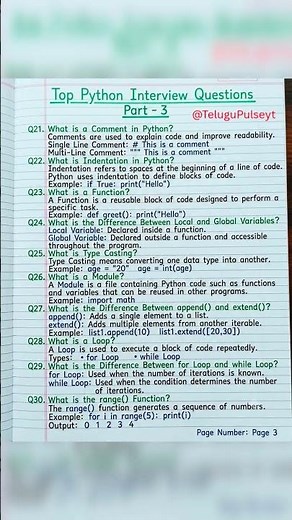 Top Python Interview Questions
Part - 3
@TeluguPulseyt
Q21. What is a Comment in Python?
Comments are used to explain code and improve readability.
Single Line Comment: # This is a comment
Multi-Line Comment: """ This is a comment """
Q22. What is Indentation in Python?
Indentation refers to spaces at the beginning of a line of code.
Python uses indentation to define blocks of code.
Example: if True: print("Hello")
Q23. What is a Function?
A Function is a reusable block of code designed to perform a
specific task.
Example: def greet(): print("Hello")
Q24. What is the Difference Between Local and Global Variables?
Local Variable: Declared inside a function.
Global Variable: Declared outside a function and accessible
throughout the program.
Q25. What is Type Casting?
Type Casting means converting one data type into another.
Example: age = "20" age = int(age)
Q26. What is a Module?
A Module is a file containing Python code such as functions
and variables that can be reused in other programs.
Example: import math
Q27. What is the Difference Between append() and extend()?
append(): Adds a single element to a list.
extend(): Adds multiple elements from another iterable.
Example: list1.append(10) list1.extend([20,30])
Q28. What is a Loop?
A Loop is used to execute a block of code repeatedly.
Types: • for Loop • while Loop
Q29. What is the Difference Between for Loop and while Loop?
for Loop: Used when the number of iterations is known.
while Loop: Used when the condition determines the number
of iterations.
Q30. What is the range() Function?
The range() function generates a sequence of numbers.
Example: for i in range(5): print(i)
Output: 0 1 2 3 4
Page Number: Page 3